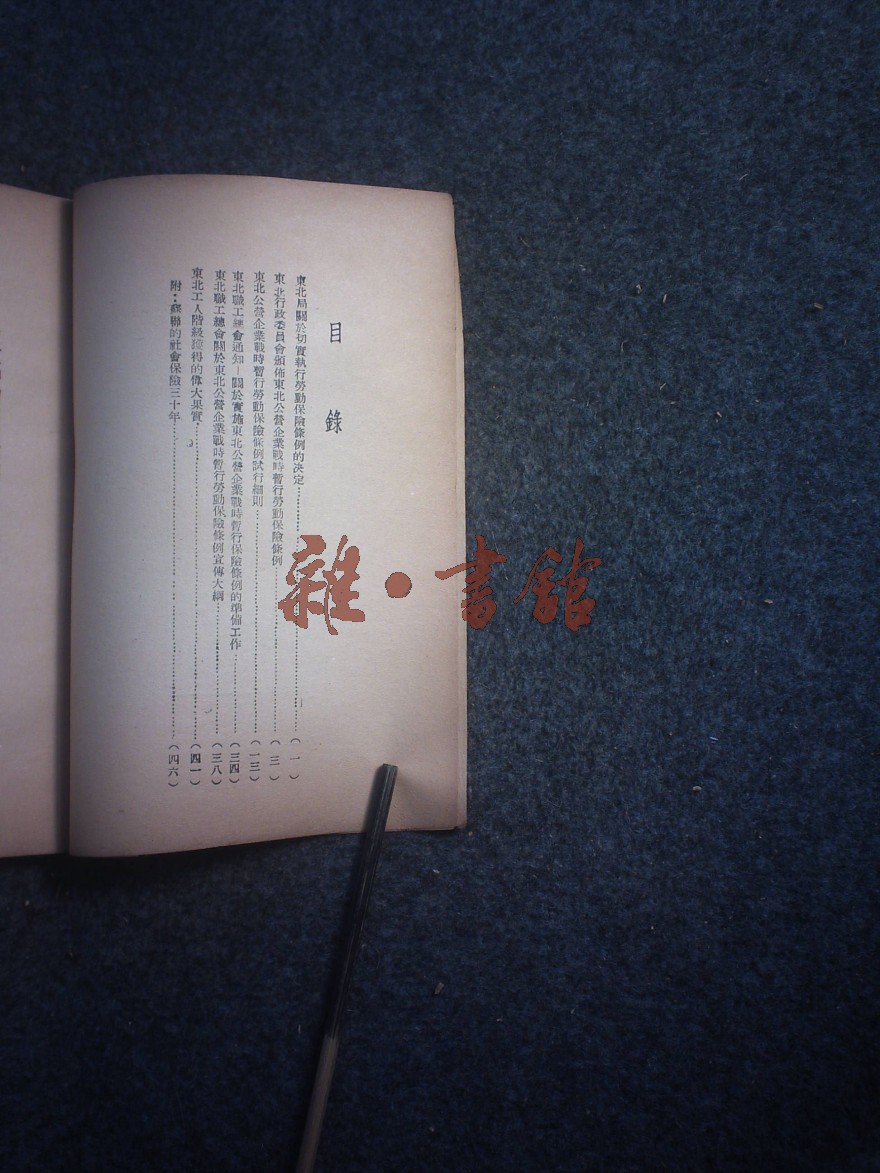 目錄
東北局關於切實執行勞動保險條例的決定…………（一）
東北行政委員會頒佈東北公營企業戰時暫行勞動保險條例…………（三）
東北公營企業戰時暫行勞動保險條例試行細則…………（一三）
東北職工總會通知—關於實施東北公營企業戰時暫行保險條例的準備工作…………（三四）
東北職工總會關於東北公營企業戰時暫行勞動保險條例宣傳大綱…………（三八）
東北工人階級獲得的偉大果實…………（四一）
附：蘇聯的社會保險三十年…………（四六）
雜·書館